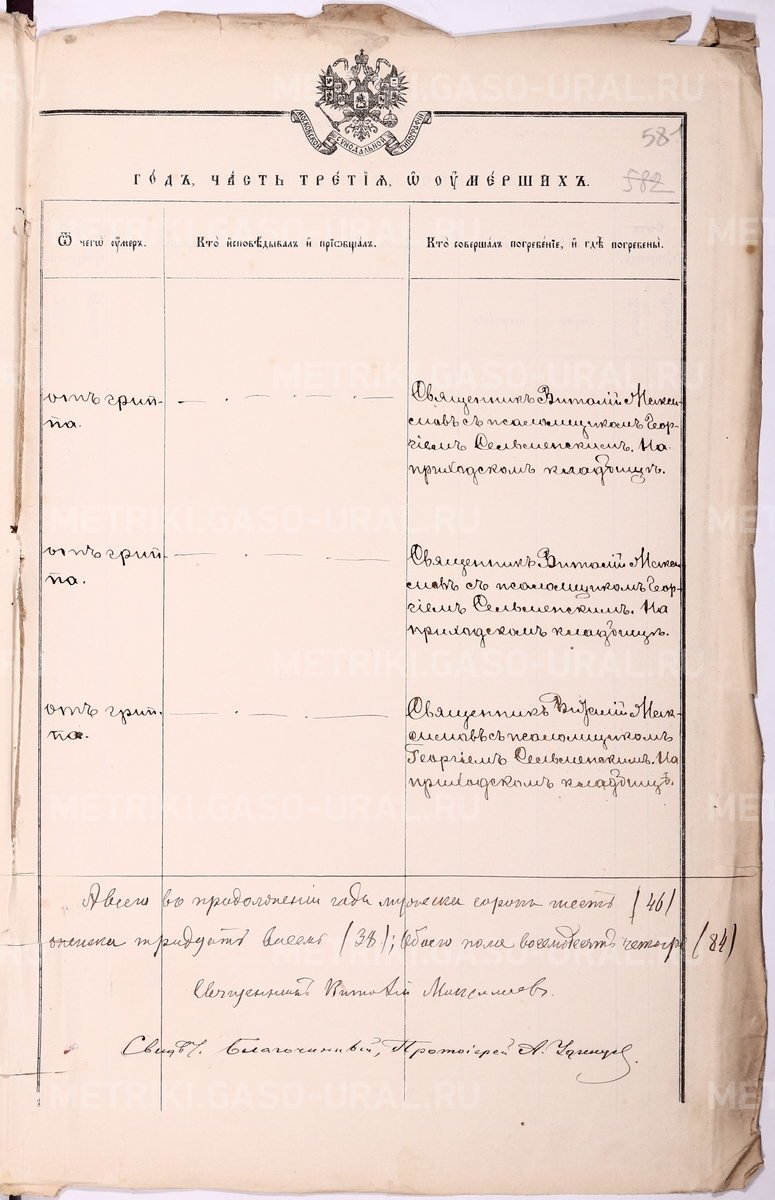 МОСКОВСКОЙ СѴНОДАЛЬНОЙ ТИПОГРАФІИ
581
582
ГО́ДЪ, ЧА́СТЬ ТРЕ́ТІѦ, Ѡ҆ ОУ҆МЕ́РШИХЪ.
Ѿ чегѡ̀ оу҆́меръ.
Кто̀ и҆сповѣ́дывалъ и҆ прїѡбща́лъ.
Кто̀ соверша́лъ погребе́нїе, и҆ гдѣ̀ погребены̀.
отъ грип-
па.
Священникъ Виталій Макси-
мовъ съ псаломщикомъ Геор-
гіемъ Сельменскимъ. На
приходскомъ кладбищѣ.
отъ грип-
па.
Священникъ Виталій Макси-
мовъ съ псаломщикомъ Геор-
гіемъ Сельменскимъ. На
приходскомъ кладбищѣ.
отъ грип-
па.
Священникъ Виталій Мак-
симовъ съ псаломщикомъ
Георгіемъ Сельменскимъ. На
приходскомъ кладбищѣ.
А всего въ продолженіи года мужеска сорокъ шесть (46)
женска тридцать восемь (38); обоего пола восемьдесятъ четыре (84)
Священникъ Виталій Максимовъ.
Свид. Благочинный, Протоіерей А.
METRIKI.GASO-URAL.RU